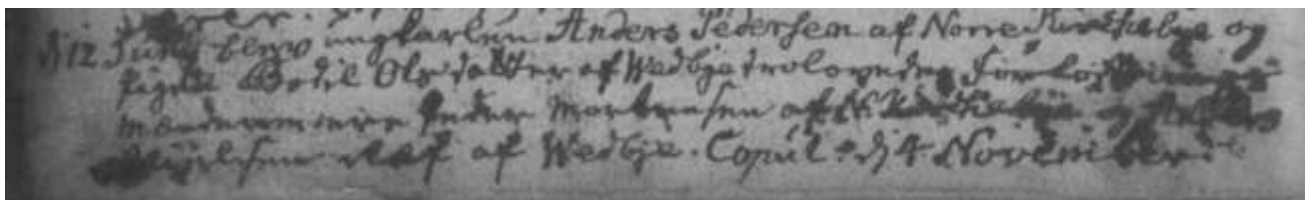 d 12 Junij blew ungkarlen Anders Pedersen af Norre Kirckebye og
pigen Bodil Olsdatter af Wedbye trolovede, forlov
mændene were Peder Mortensen af N. og
af Wedbye. Copul: d 4 November: